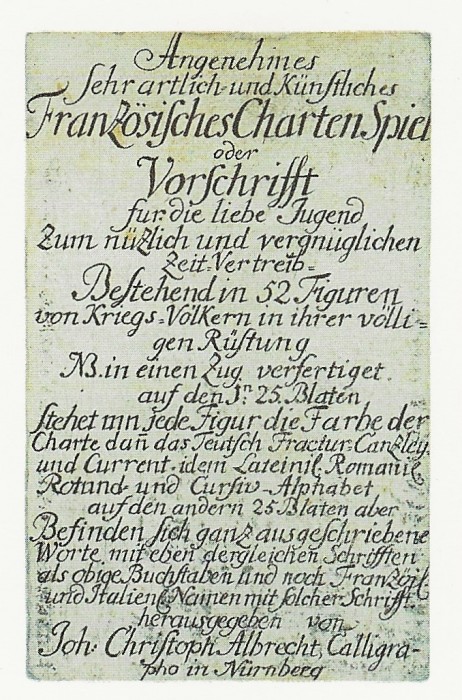 Angenehmes
sehr artlich-und Künstliches
Französisches Charten Spiel
oder
Vorschrifft
für die liebe Jugend
Zum nüzlich und vergnüglichen
Zeit-Vertreib=
Bestehend in 52 Figuren
von Kriegs-Völkern in ihrer völli=
gen Rüstung
NB. in einen Zug verfertiget.
auf den 1n. 25. Blaten
stehet um jede Figur die Farbe der
Charte dañ das Teutsch Fractur-Canzley
und Current-idem Lateinis. Romanis
Rotund- und Cursiv-Alphabet,
auf den andern 25 Blaten aber
Befinden sich ganz ausgeschriebene
Worte mit eben dergleichen Schrifften
als obige Buchstaben und noch Französ.
und Italien. Namen mit solcher Schrifft.
herausgegeben von
Joh. Christoph Albrecht, Calligra-
pho in Nürnberg